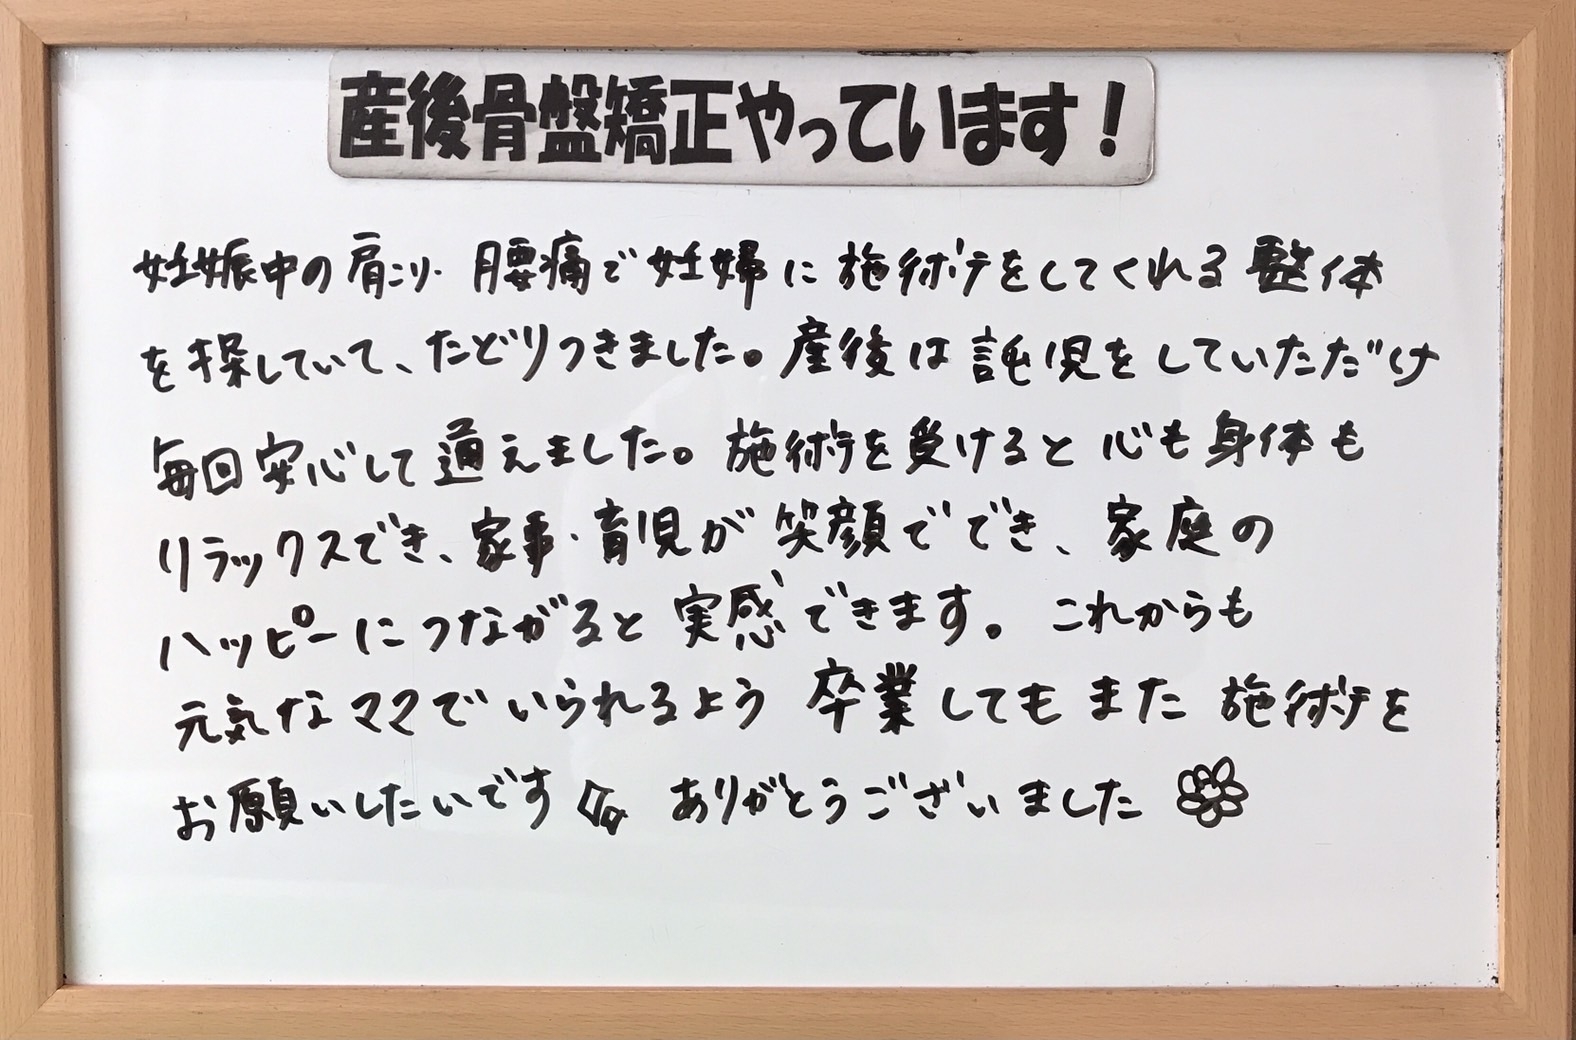 産後骨盤矯正やっています！
妊娠中の肩こり・腰痛で妊婦に施術をしてくれる整体
を探していて、たどりつきました。産後は託児をしていただけ
毎回安心して通えました。施術を受けると心も身体も
リラックスでき、家事・育児が笑顔ででき、家庭の
ハッピーにつながると実感できます。これからも
元気なママでいられるよう卒業してもまた施術を
お願いしたいです ありがとうございました